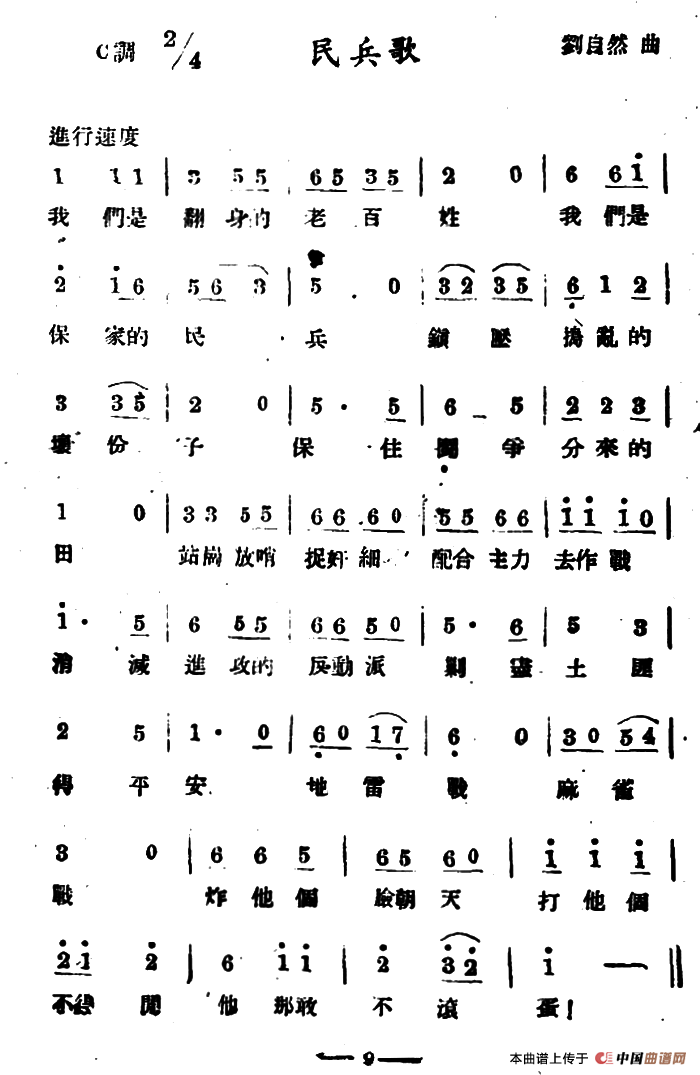 C調 2/4 民兵歌 劉自然 曲
進行速度
1 1 1 1 | 3 5 5 | 6 5 3 5 | 2 0 | 6 6 i |
我們是 翻身的 老百姓 我們是
2 1 6 | 5 6 3 | 5 0 | 3 2 3 5 | 6 1 2 |
保家的民兵 鎮壓搗亂的
3 3 5 | 2 0 | 5 · 5 | 6 5 | 2 2 3 |
壞份子 保住鬭爭分來的
1 0 | 3 3 5 5 | 6 6 6 0 | 5 5 6 6 | i i i 0 |
田 站崗放哨 捉奸細 配合主力 去作戰
i · 5 | 6 5 5 | 6 6 5 0 | 5 · 6 | 5 3 |
消滅進攻的反動派 剿盡土匪
2 5 | 1 · 0 | 6 0 1 7 | 6 0 | 3 0 5 4 |
得平安 地雷戰 麻雀
3 0 | 6 6 5 | 6 5 6 0 | i i i |
戰 炸他個臉朝天 打他個
2 1 2 | 6 i i | 2 3 2 | i — ||
不得閒 他那敢不滾蛋！
9
本曲谱上传于 中国曲谱网